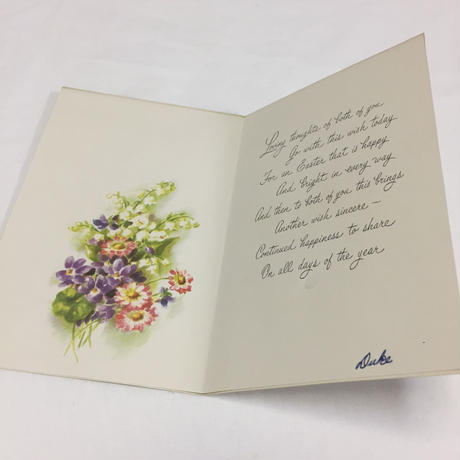 Loving thoughts of both of you
Go with this wish today
For an Easter that is happy
And bright in every way
And then to both of you this brings
Another wish sincere —
Continued happiness to share
On all days of the year
Duke